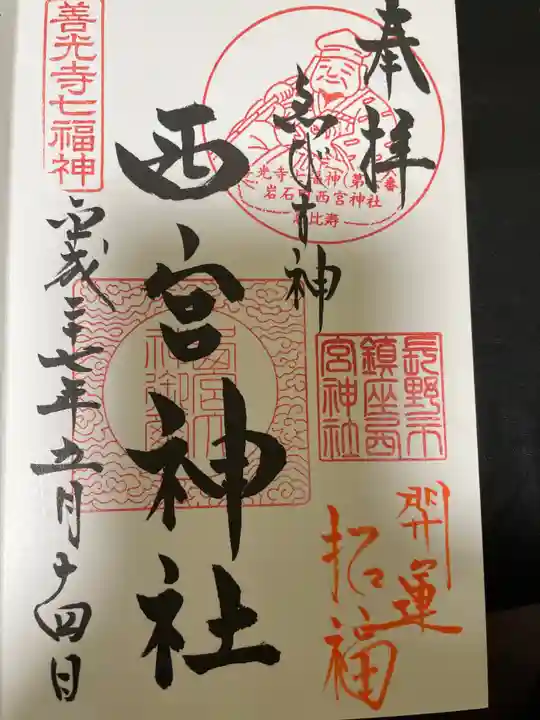 奉拝
ゑびす神
善光寺七福神 第 番
岩石町西宮神社
恵比寿
長野市
鎮座西
宮神社
開運
招福
西宮神社
善光寺七福神
平成二十七年五月十四日